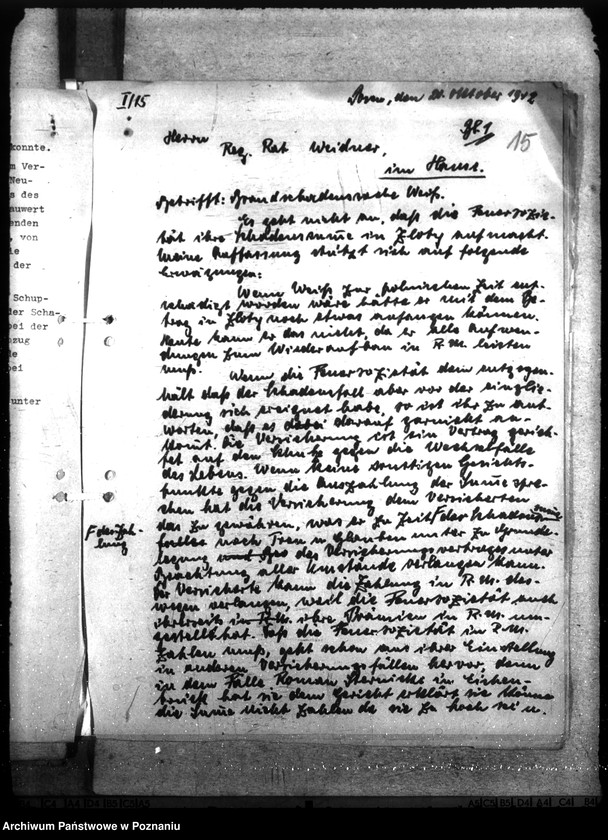 konnte.
m Ver-
Neu-
s des
auwert
enden
, von
ie
der
Schup-
der Scha-
bei der
zug
le
bei
unter
I/15
Posen, den 21. Oktober 1942
Bl. 1
15
Herrn
Reg. Rat Weidner,
im Hause.
Betrifft: Brandschadenssache Weiß.
Es geht nicht an, daß die Feuersozie-
tät ihre Schadenssumme in Zloty aufmacht.
Meine Auffassung stützt sich auf folgende
Erwägungen:
Wenn Weiß zur polnischen Zeit ent-
schädigt worden wäre hätte er mit dem Be-
trag in Zloty noch etwas anfangen können.
Heute kann er das nicht, da er alle Aufwen-
dungen zum Wiederaufbau in R.M. leisten
muß.
Wenn die Feuersozietät dem entgegen-
hält daß der Schadensfall aber vor der Einglie-
derung sich ereignet habe, so ist ihr zu ant-
worten, daß es dabei darauf garnicht an-
kommt. Die Versicherung ist ein Vertrag gerich-
tet auf den Schutz gegen die Wechselfälle
des Lebens. Wenn keine sonstigen Gesichts-
punkte gegen die Auszahlung der Summe spre-
chen hat die Versicherung dem Versicherten
das zu gewähren, was er zu Zeit F des Schadens
F der Zah-
lung
falles nach Treu u. Glauben unter zu Grunde-
legung des Versicherungsvertrages unter
Beachtung aller Umstände verlangen kann.
Der Versicherte kann die Zahlung in R.M. des-
wegen verlangen, weil die Feuersozietät auch
ihre Prämien in R.M. um-
gestellt hat. Daß die Feuersozietät in R.M.
zahlen muß, geht schon aus ihrer Einstellung
in anderen Versicherungsfällen hervor, denn
in dem Falle Roman in Eichen-
hat sie dem Gericht erklärt sie könne
die Summe nicht zahlen da sie zu hoch sei u.
Archiwum Państwowe w Poznaniu